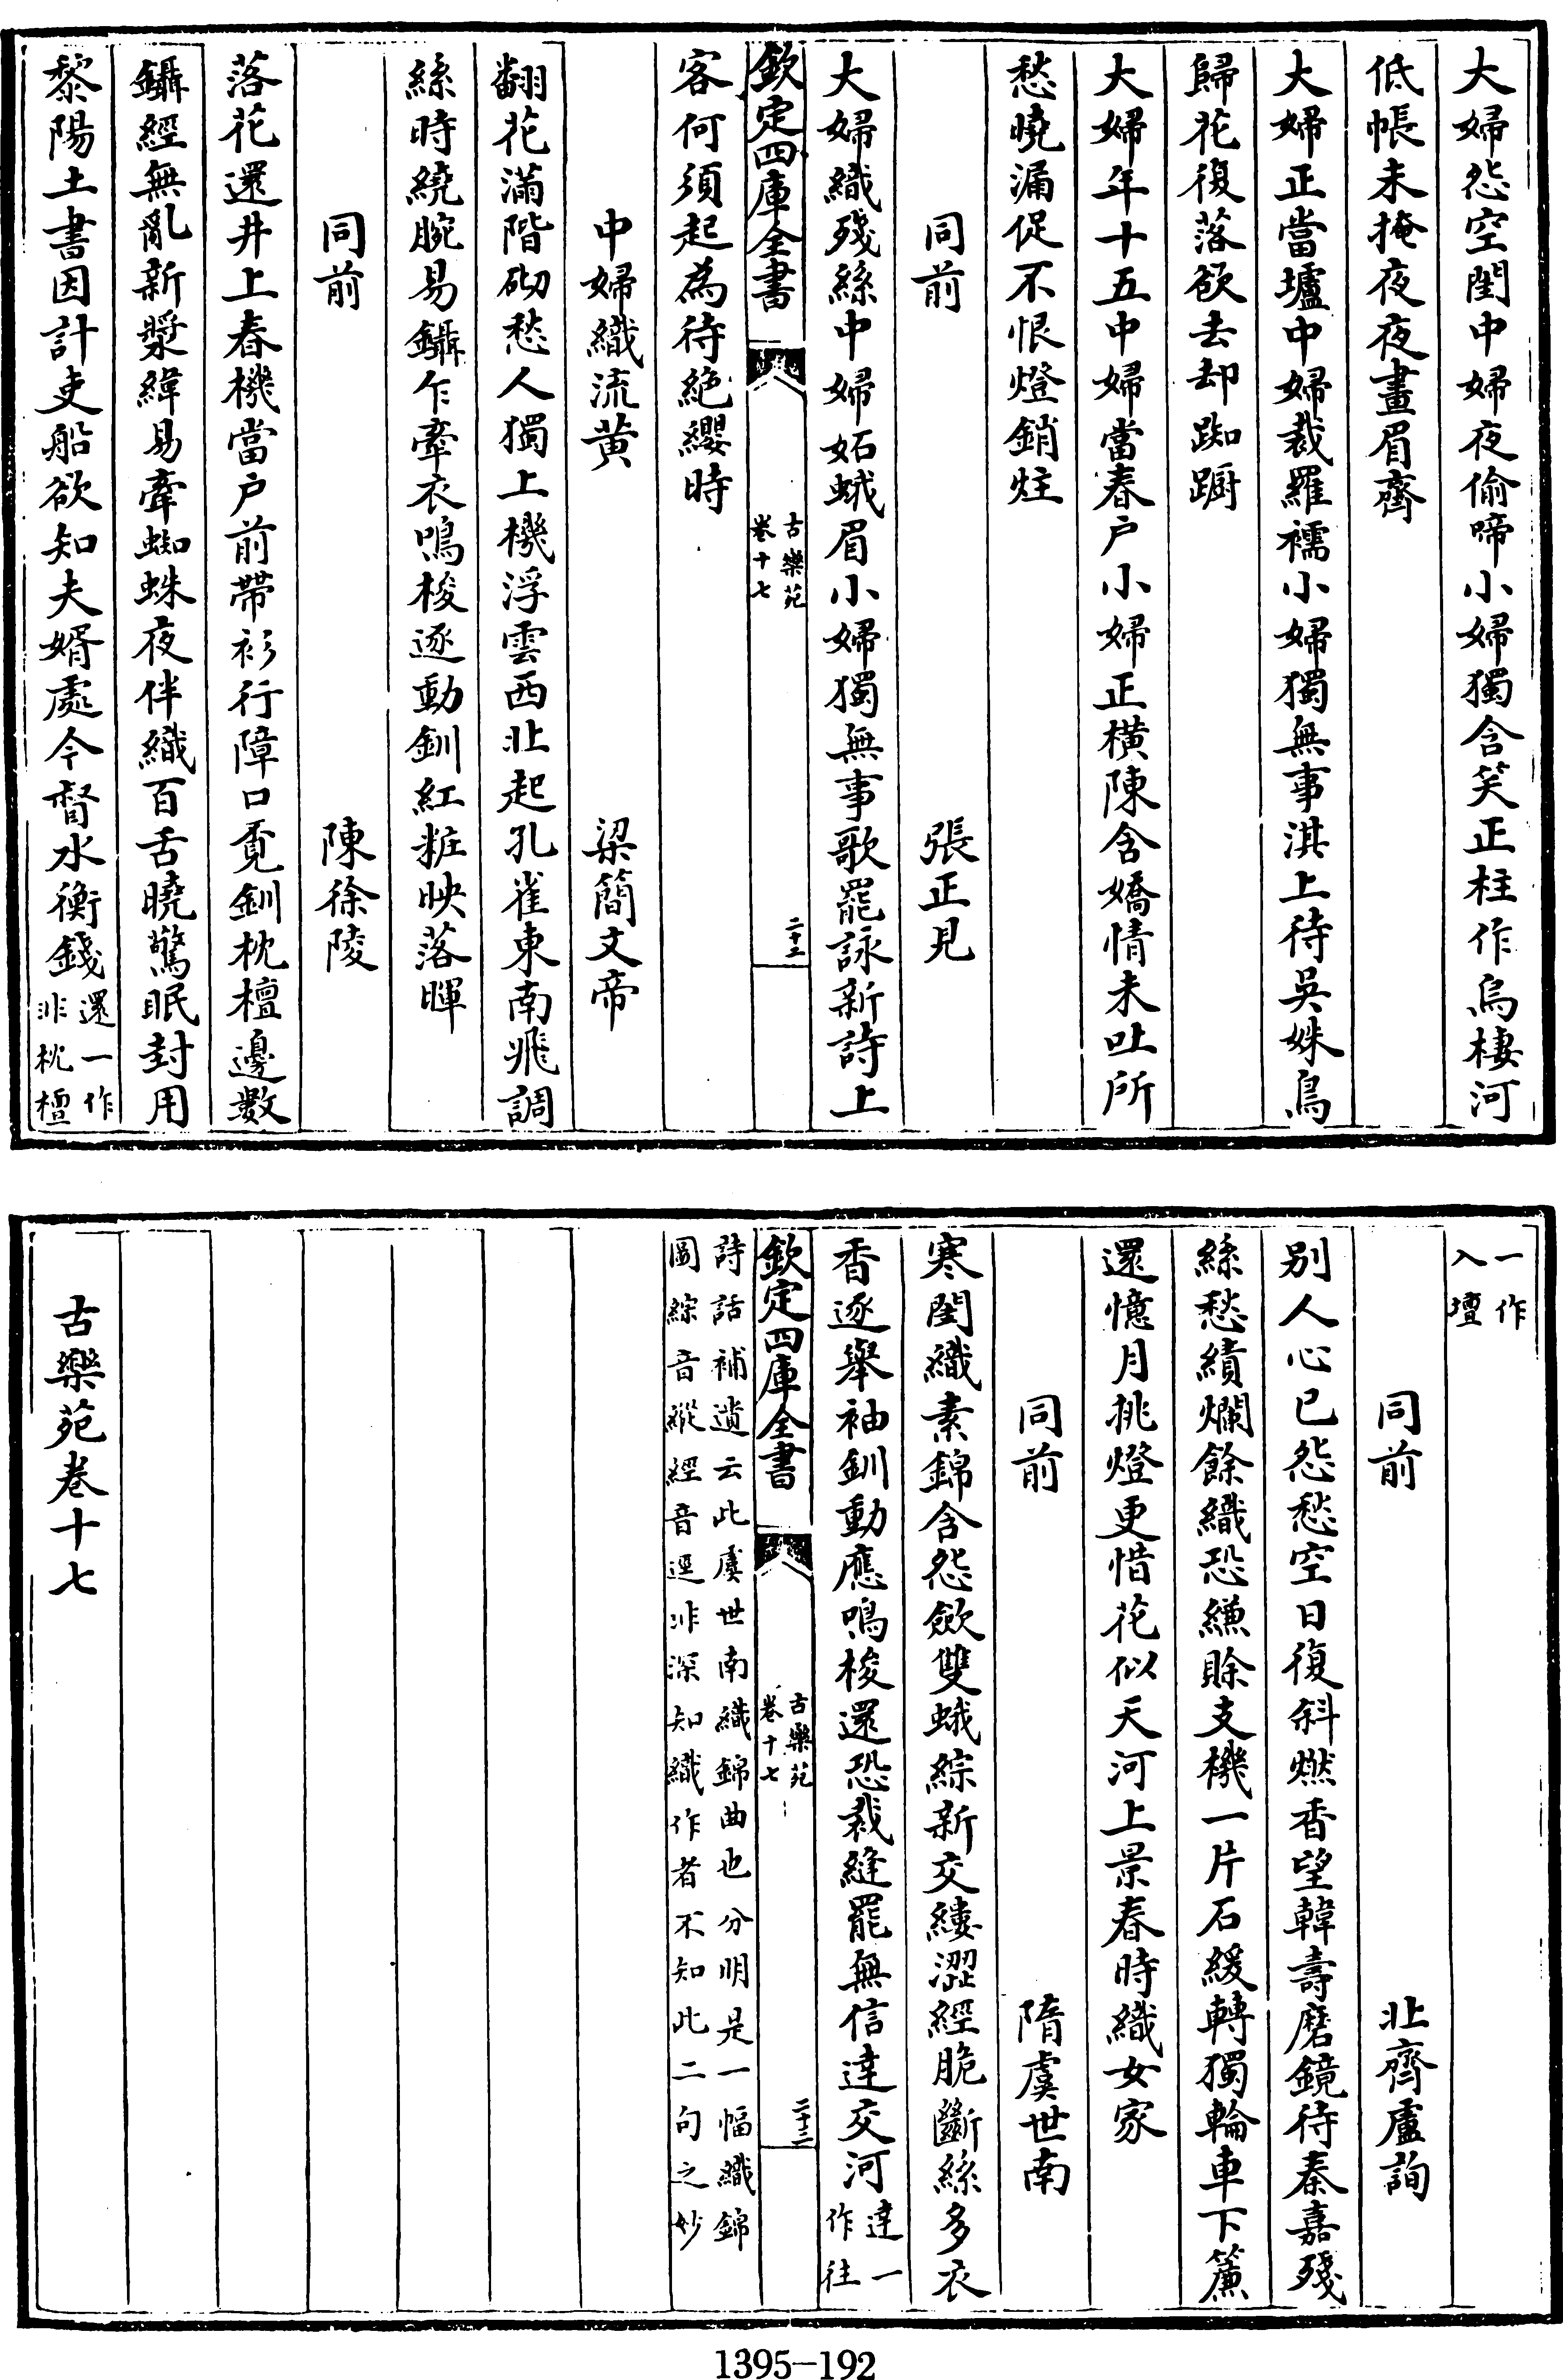 大婦怨空閨中婦夜偷啼小婦獨含笑正柱作烏棲河
低帳未掩夜夜畫眉齊
大婦正當壚中婦裁羅襦小婦獨無事淇上待吳姝鳥
歸花復落欲去却踟蹰
大婦年十五中婦當春戶小婦正橫陳含嬌情未吐所
愁曉漏促不恨燈銷炷
同前 張正見
大婦織殘絲中婦妬蛾眉小婦獨無事歌罷詠新詩上
欽定四庫全書 古樂苑 卷十七 二十二
客何須起為待絶纓時
中婦織流黃 梁簡文帝
翻花滿階砌愁人獨上機浮雲西北起孔雀東南飛調
絲時繞腕易鑷乍牽衣鳴梭逐動釧紅粧映落暉
同前 陳徐陵
落花還井上春機當戶前帶衫行障口覔釧枕檀邊數
鑷經無亂新漿緯易牽蜘蛛夜伴織百舌曉驚眠封用
黎陽土書因計吏船欲知夫婿處今督水衡錢還一作非枕檀
一作入壇
同前 北齊盧詢
别人心已怨愁空日復斜燃香望韓壽磨鏡待秦嘉殘
絲愁績爛餘織恐縑賖支機一片石緩轉獨輪車下簾
還憶月挑燈更惜花似天河上景春時織女家
同前 隋虞世南
寒閨織素錦含怨歛雙蛾綜新交縷澀經脆斷絲多衣
香逐舉袖釧動應鳴梭還恐裁縫罷無信達交河達一作往
欽定四庫全書 古樂苑 卷十七 二十三
詩話補遺云此虞世南織錦曲也分明是一幅織錦
圖綜音縱經音逕非深知織作者不知此二句之妙
古樂苑卷十七
1395—192